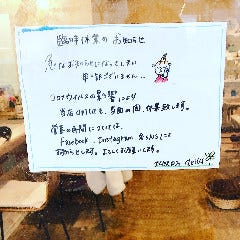 臨時休業のお知らせ
急なお知らせになってしまい
申し訳ございません...
コロナウイルスの影響により
当店は、当面の間、休業致します。
営業の再開については、
Facebook、Instagram 各SNSにて
お知らせします。よろしくお願いします。